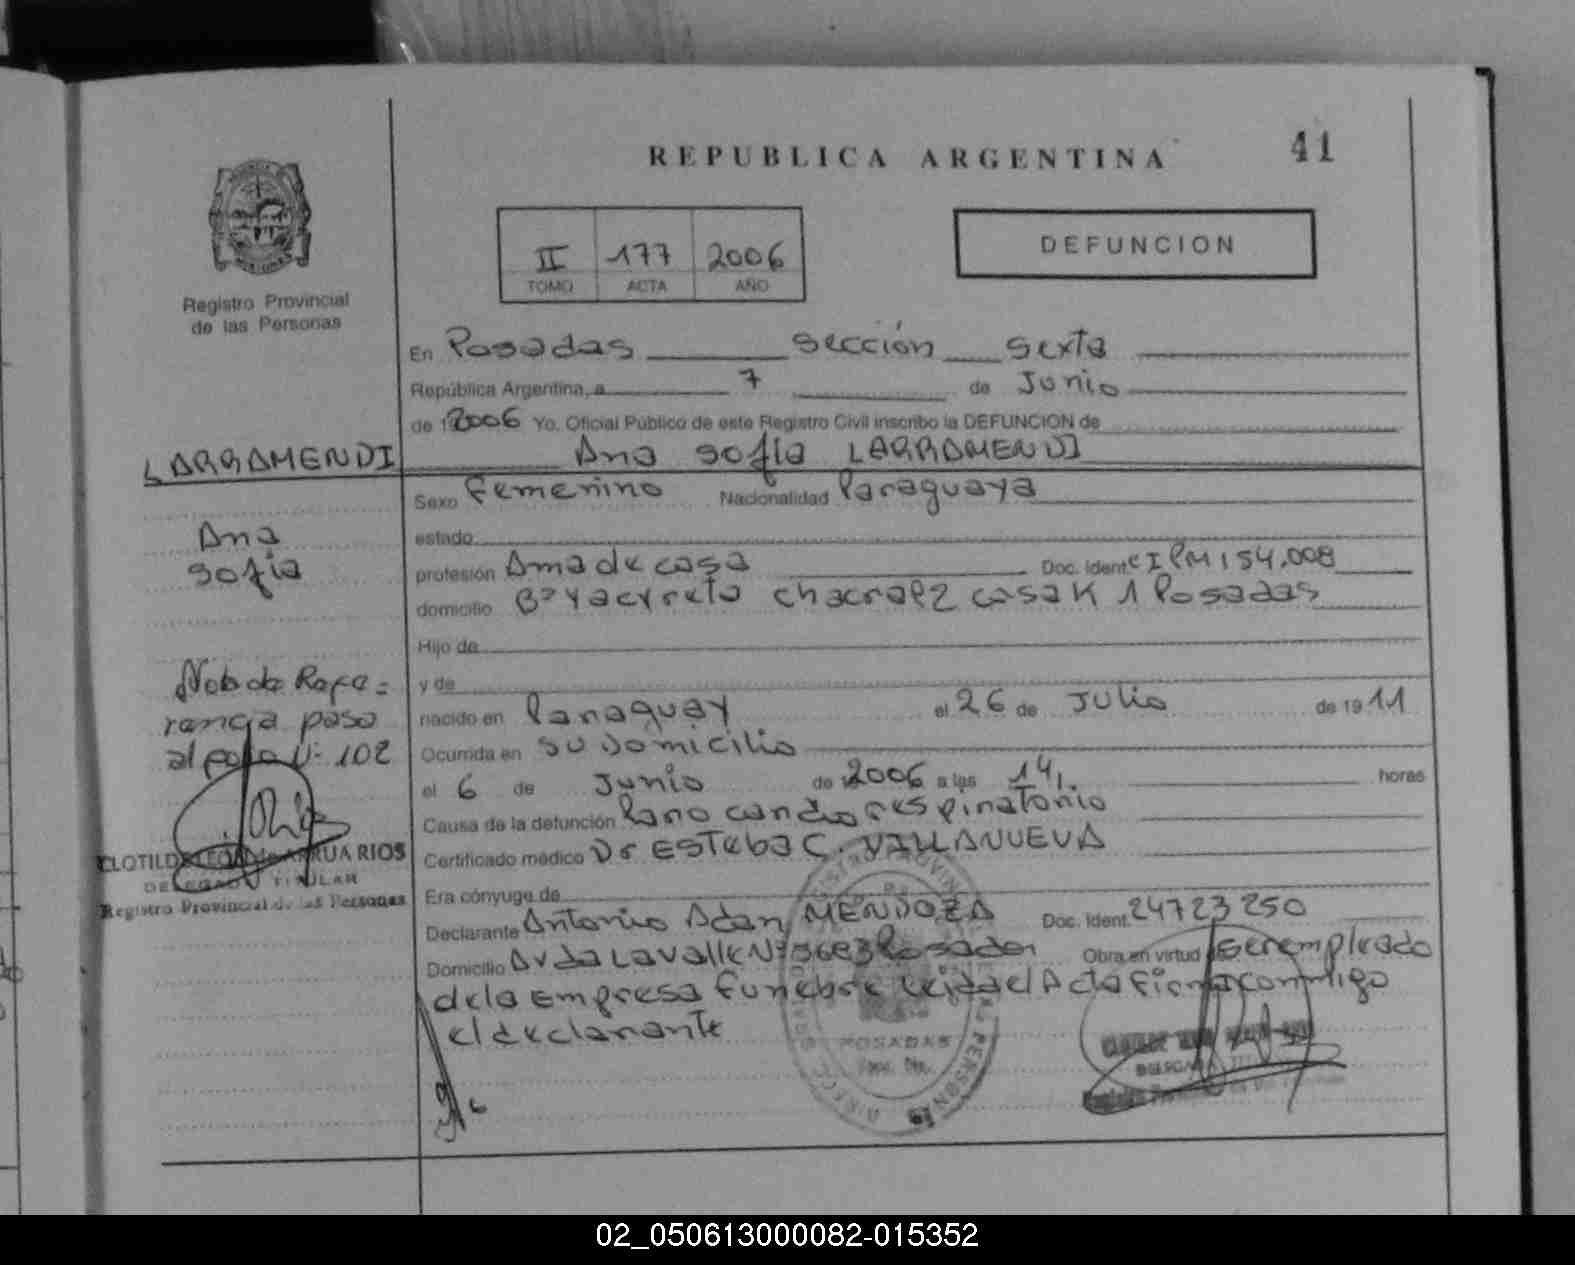 REPUBLICA ARGENTINA
41
II 177 2006
TOMO ACTA AÑO
DEFUNCION
Registro Provincial
de las Personas
En Posadas sección sexta
República Argentina, a 7 de Junio
de 2006 Yo. Oficial Público de este Registro Civil inscribo la DEFUNCION de
LARRAMENDI
Ana sofía LARRAMENDI
Sexo Femenino Nacionalidad Paraguaya
Ana
sofia
estado
profesión Ama de casa Doc. Ident. CI PM 154.008
domicilio Bº Yacyreta chacra 92 casa K 1 Posadas
Hijo de
y de
Nota de Refe=
rencia paso
al folio Nº 102
nacido en Paraguay el 26 de Julio de 1911
Ocurrida en su domicilio
el 6 de Junio de 2006 a las 14,. horas
Causa de la defunción Paro cardiorespiratorio
Certificado médico Dr ESTEBA C. VILLANUEVA
ARRUA RIOS
DELEGADO TITULAR
Registro Provincial de las Personas
Era cónyuge de
Declarante Antonio Adan MENDOZA Doc. Ident. 24723250
Domicilio Avda Lavalle Nº 3683 Posadas Obra en virtud de ser empleado
de la Empresa Funebre leida el Acta Firma conmigo
el declarante
POSADAS
02_050613000082-015352